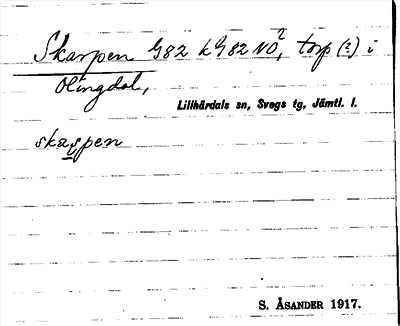 Skarpen G82 k G82 NO², torp (?) i
Olingdal,
Lillhärdals sn, Svegs tg, Jämtl. l.
skarpen
S. ÅSANDER 1917.